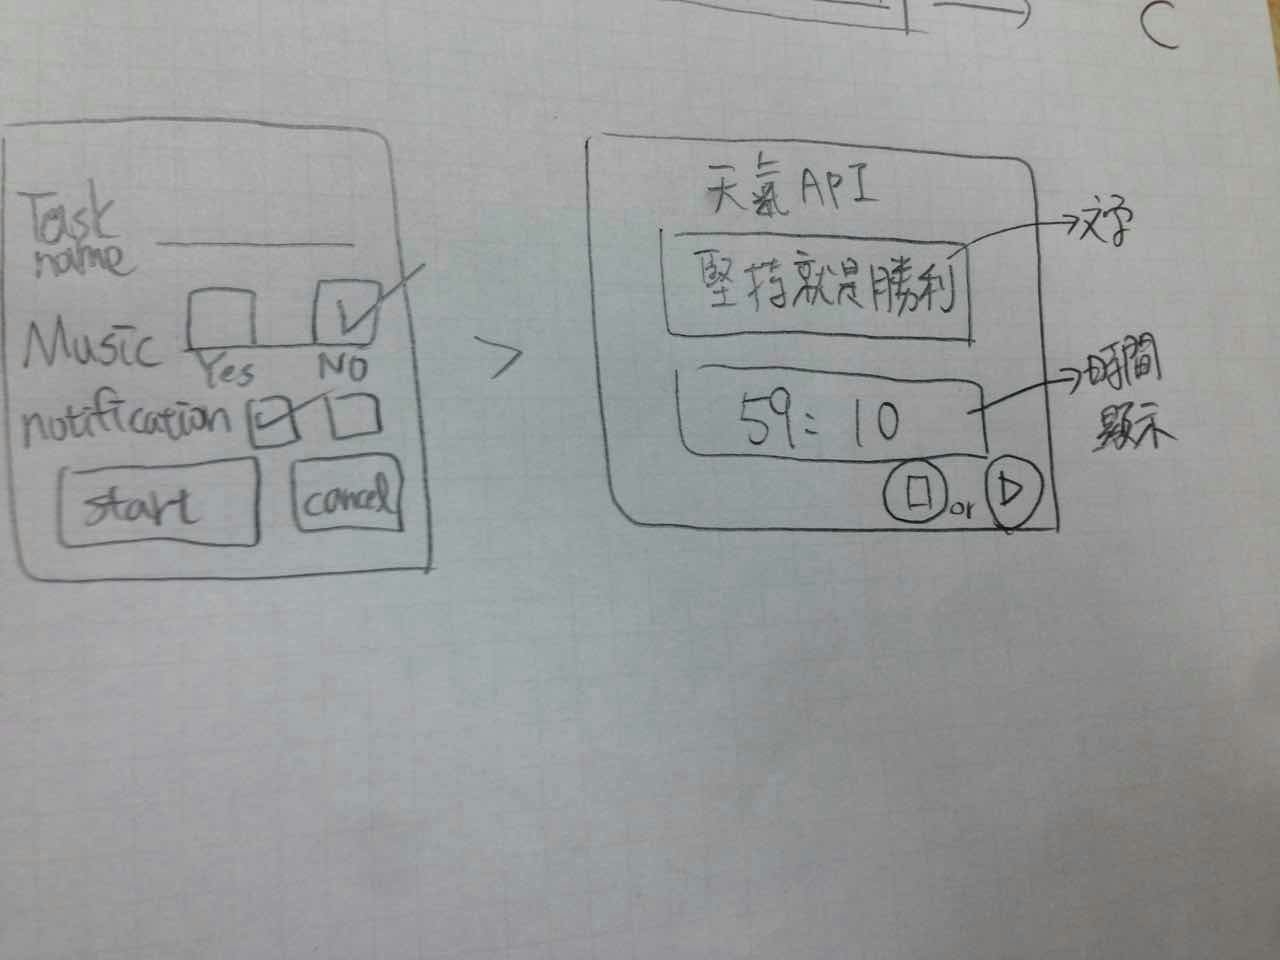 C
Task
name
Music
Yes
NO
notification
start
cancel
>
天氣 API
堅持就是勝利
59:10
or
文字
時間
顯示